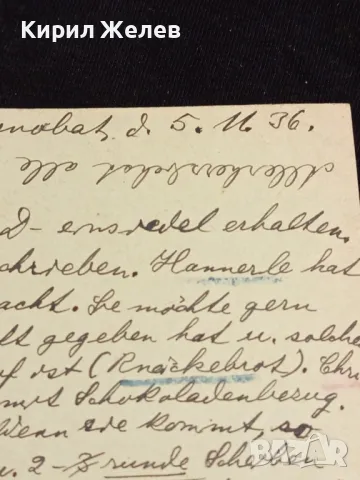 Кирил Желев
nobat, d. 5. 11. 36.
alle
D-ensiedel erhalten.
chrieben. Hannerle hat
acht. Sie möchte gern
lt gegeben hat u. solche
ist (Knäckebrot). Chri
mit Schokoladenbezug.
Wenn sie kommt, so
u. 2 - runde Scheiben
bazar.bg